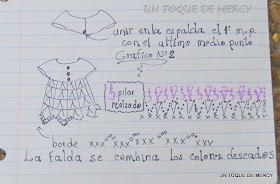 UN TOQUE DE MERCY
unir en la espalda el 1º m.p.
con el ultimo medio punto
Grafico Nº2
5 pilar
realzado
borde xxx ooo xxx ooo xxx ooo xxx
La falda se combina los colores deseados
UN TOQUE DE MERCY